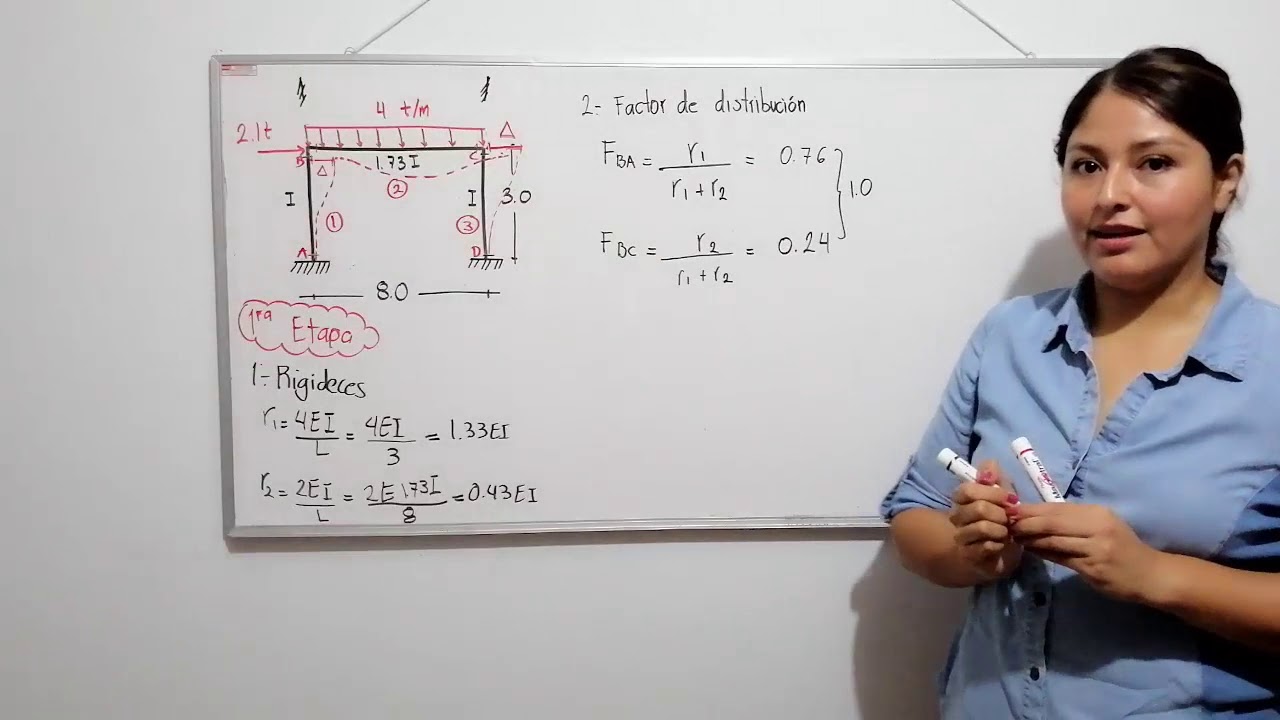 4 t/m
2.1t
Δ
B
1.73I
C
Δ
②
I
I
3.0
①
③
A
D
8.0
1ra Etapa
1.- Rigideces
r₁ = 4EI/L = 4EI/3 = 1.33EI
r₂ = 2EI/L = 2E1.73I/8 = 0.43EI
2.- Factor de distribución
F_BA = r₁/(r₁+r₂) = 0.76
1.0
F_BC = r₂/(r₁+r₂) = 0.24